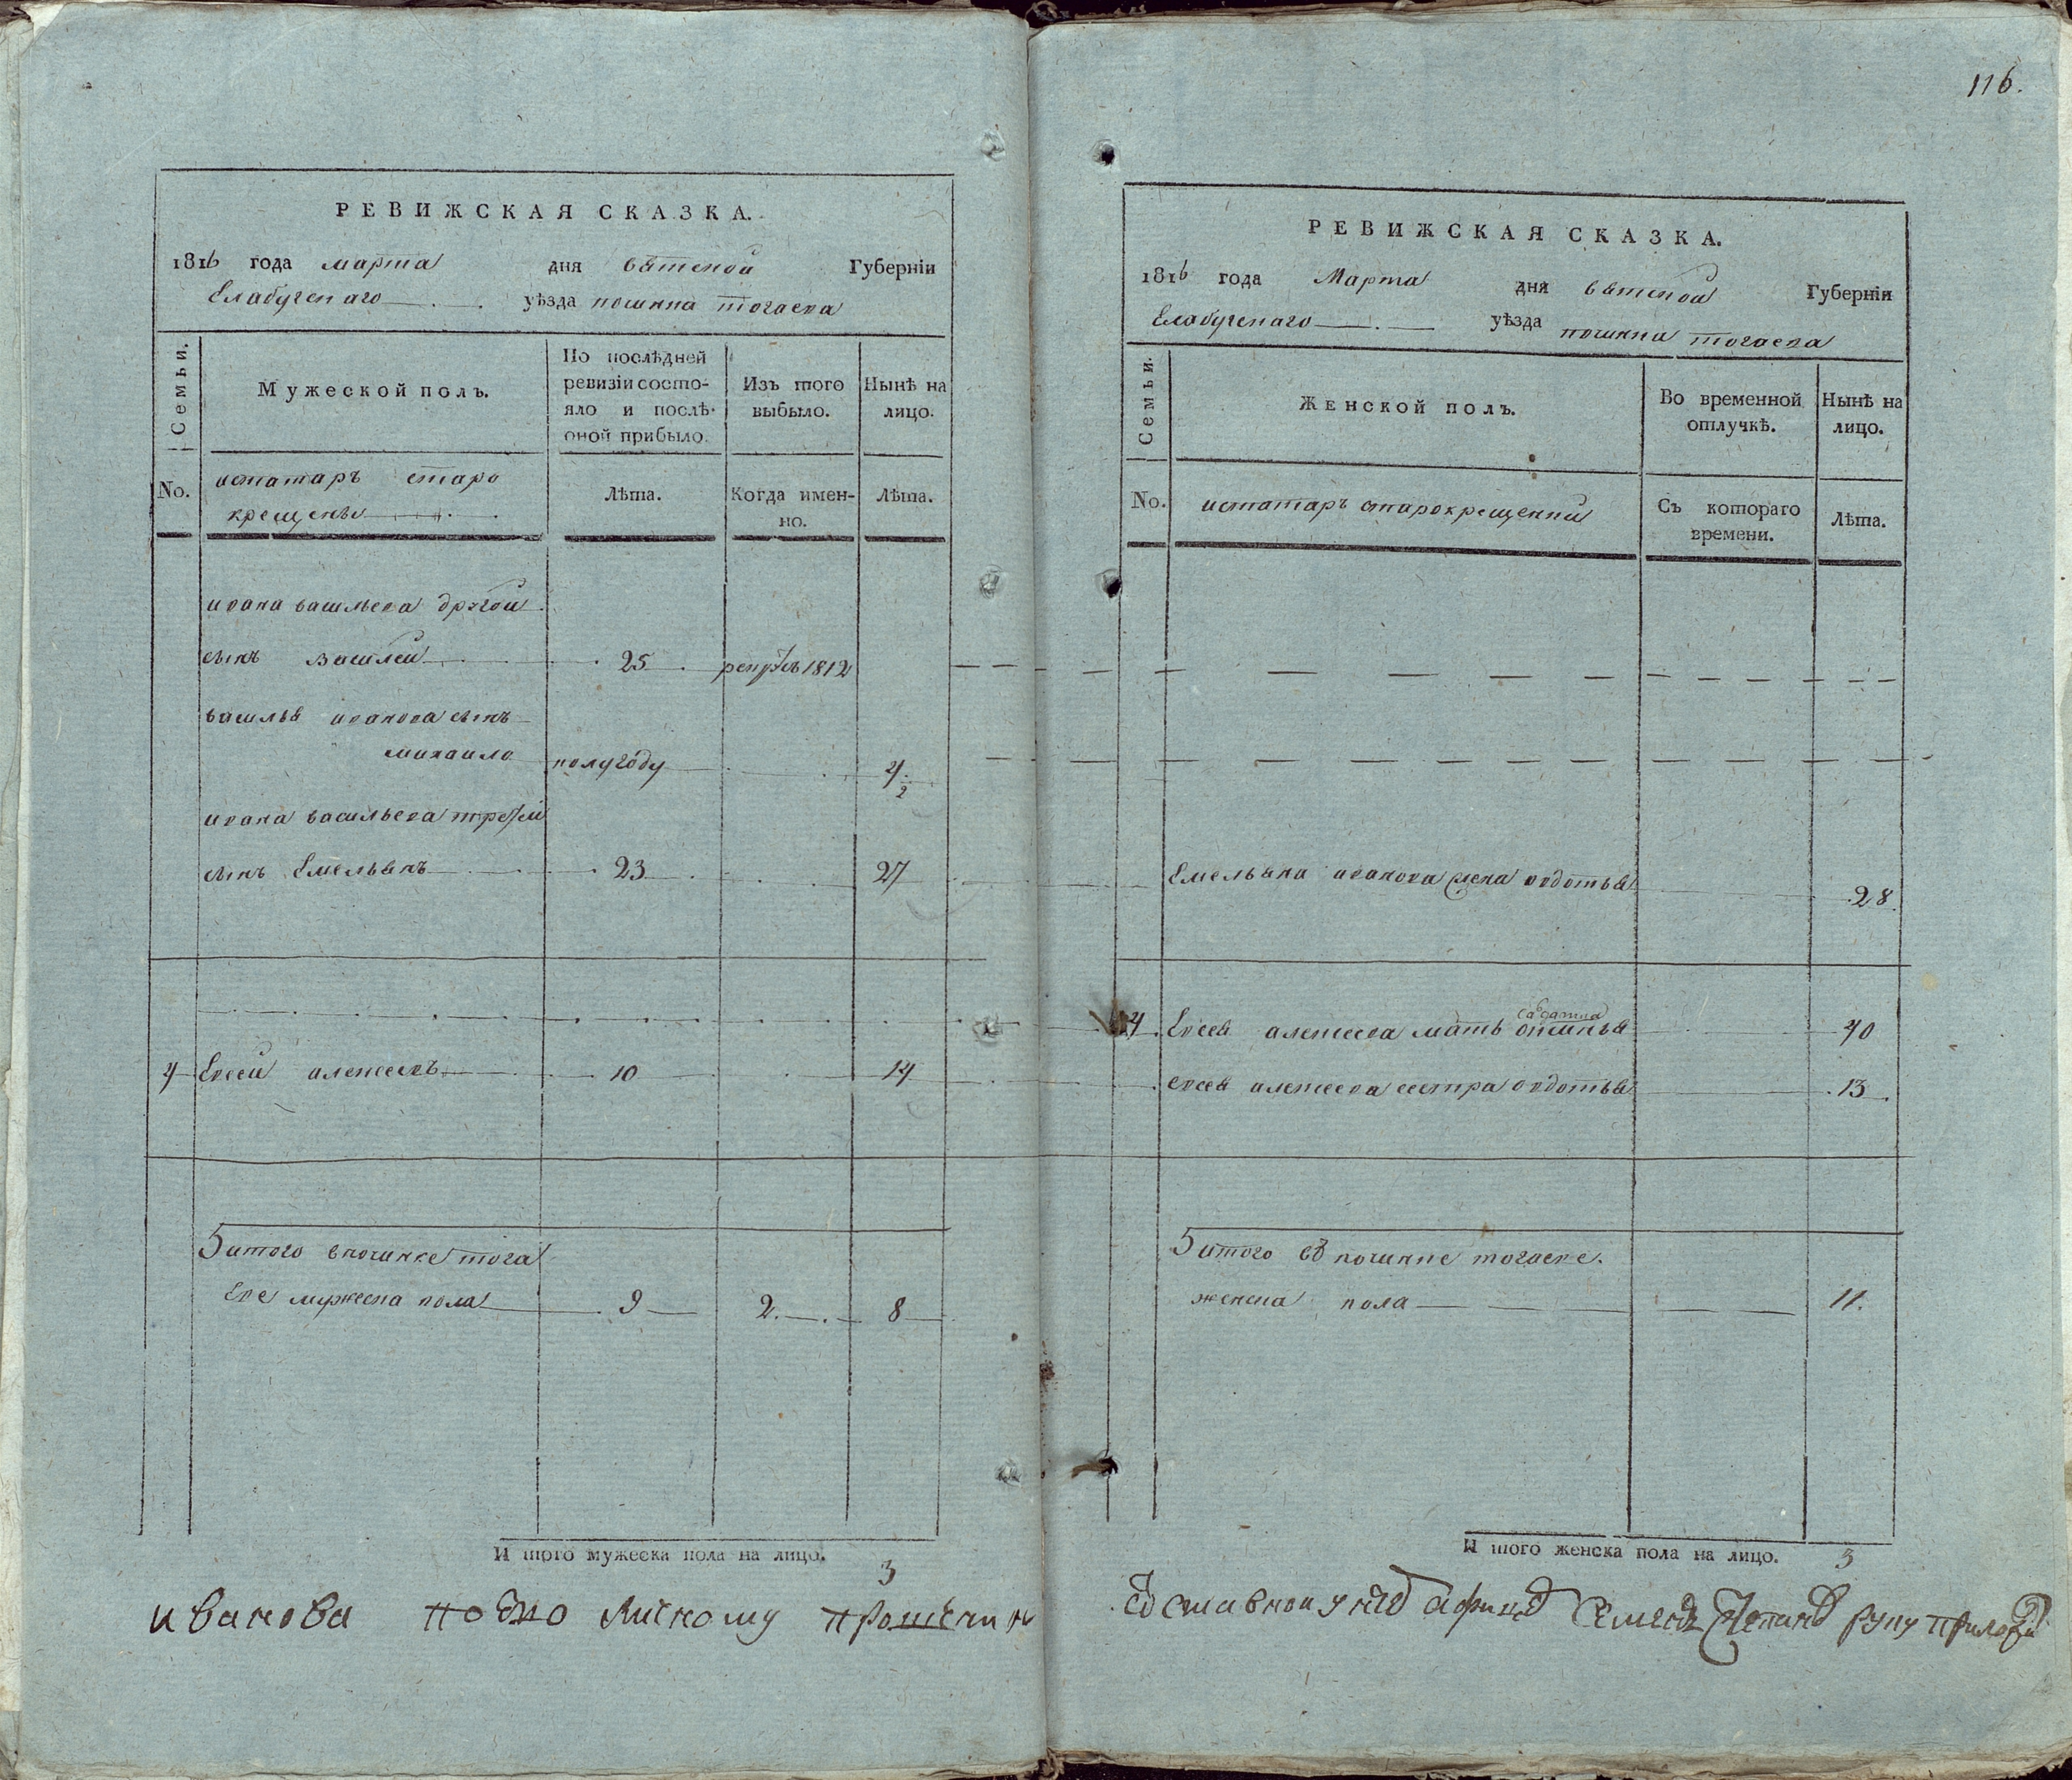 116.
РЕВИЖСКАЯ СКАЗКА.
1816 года марта дня вятской Губернiи
Елабугскаго уѣзда починка тогаева
Семьи.
Мужеской полъ.
По послѣдней ревизiи состо-
яло и послѣ
оной прибыло.
Изъ того
выбыло.
Нынѣ на
лицо.
No.
истатаръ старо
крещены
Лѣта.
Когда имен-
но.
Лѣта.
ивана васильева другой
сынъ василей 25 рекрутъ 1812
василья иванова сынъ
михаило полугоду 4 1/2
ивана васильева третей
сынъ Емельянъ 23 27
4 Евсей алексеевъ 10 14
итого впочинке тога
еве мужеска пола 9 2 8
И того мужеска пола на лицо. 3
иванова по ево личному прошению
РЕВИЖСКАЯ СКАЗКА.
1816 года Марта дня вятской Губернiи
Елабугскаго уѣзда починка тогаева
Семьи.
Женской полъ.
Во временной
отлучкѣ.
Нынѣ на
лицо.
No.
истатаръ старокрещенных
Съ котораго
времени.
Лѣта.
Емельяна иванова жена овдотья 28
4 Евсея алексеева мать 40
евсея алексеева сестра овдотья 13
итого въ починке тогаеве.
женска пола 11.
И того женска пола на лицо. 3
Семенъ Степановъ руку приложилъ